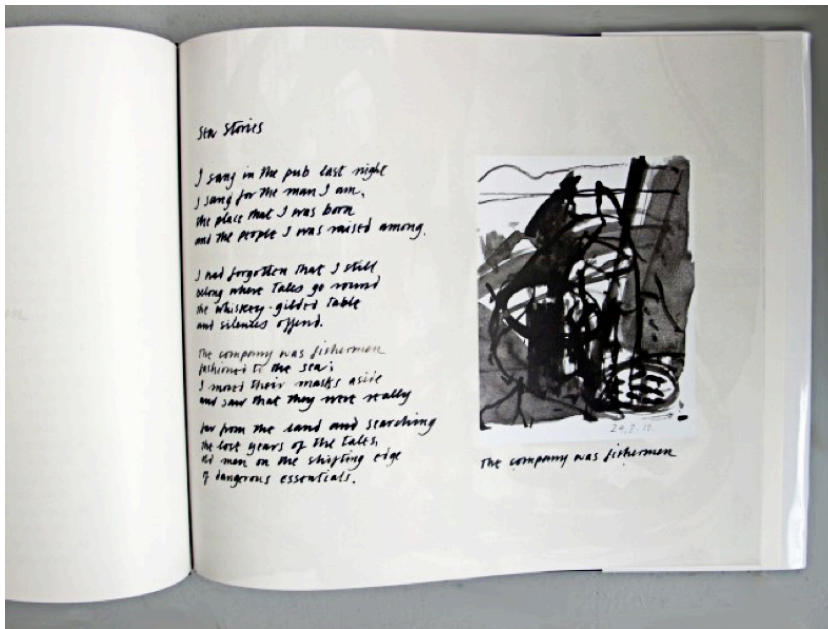 Sea Stories
I sang in the pub last night
I sang for the man I am,
the place that I was born
and the people I was raised among.
I had forgotten that I still
belong where tales go round
the whiskey-gilded table
and silences offend.
The company was fishermen
fashioned to the sea;
I moved their masks aside
and saw that they were really
far from the land and searching
the lost years of the tales,
old men on the shifting edge
of dangerous essentials.
The company was fishermen